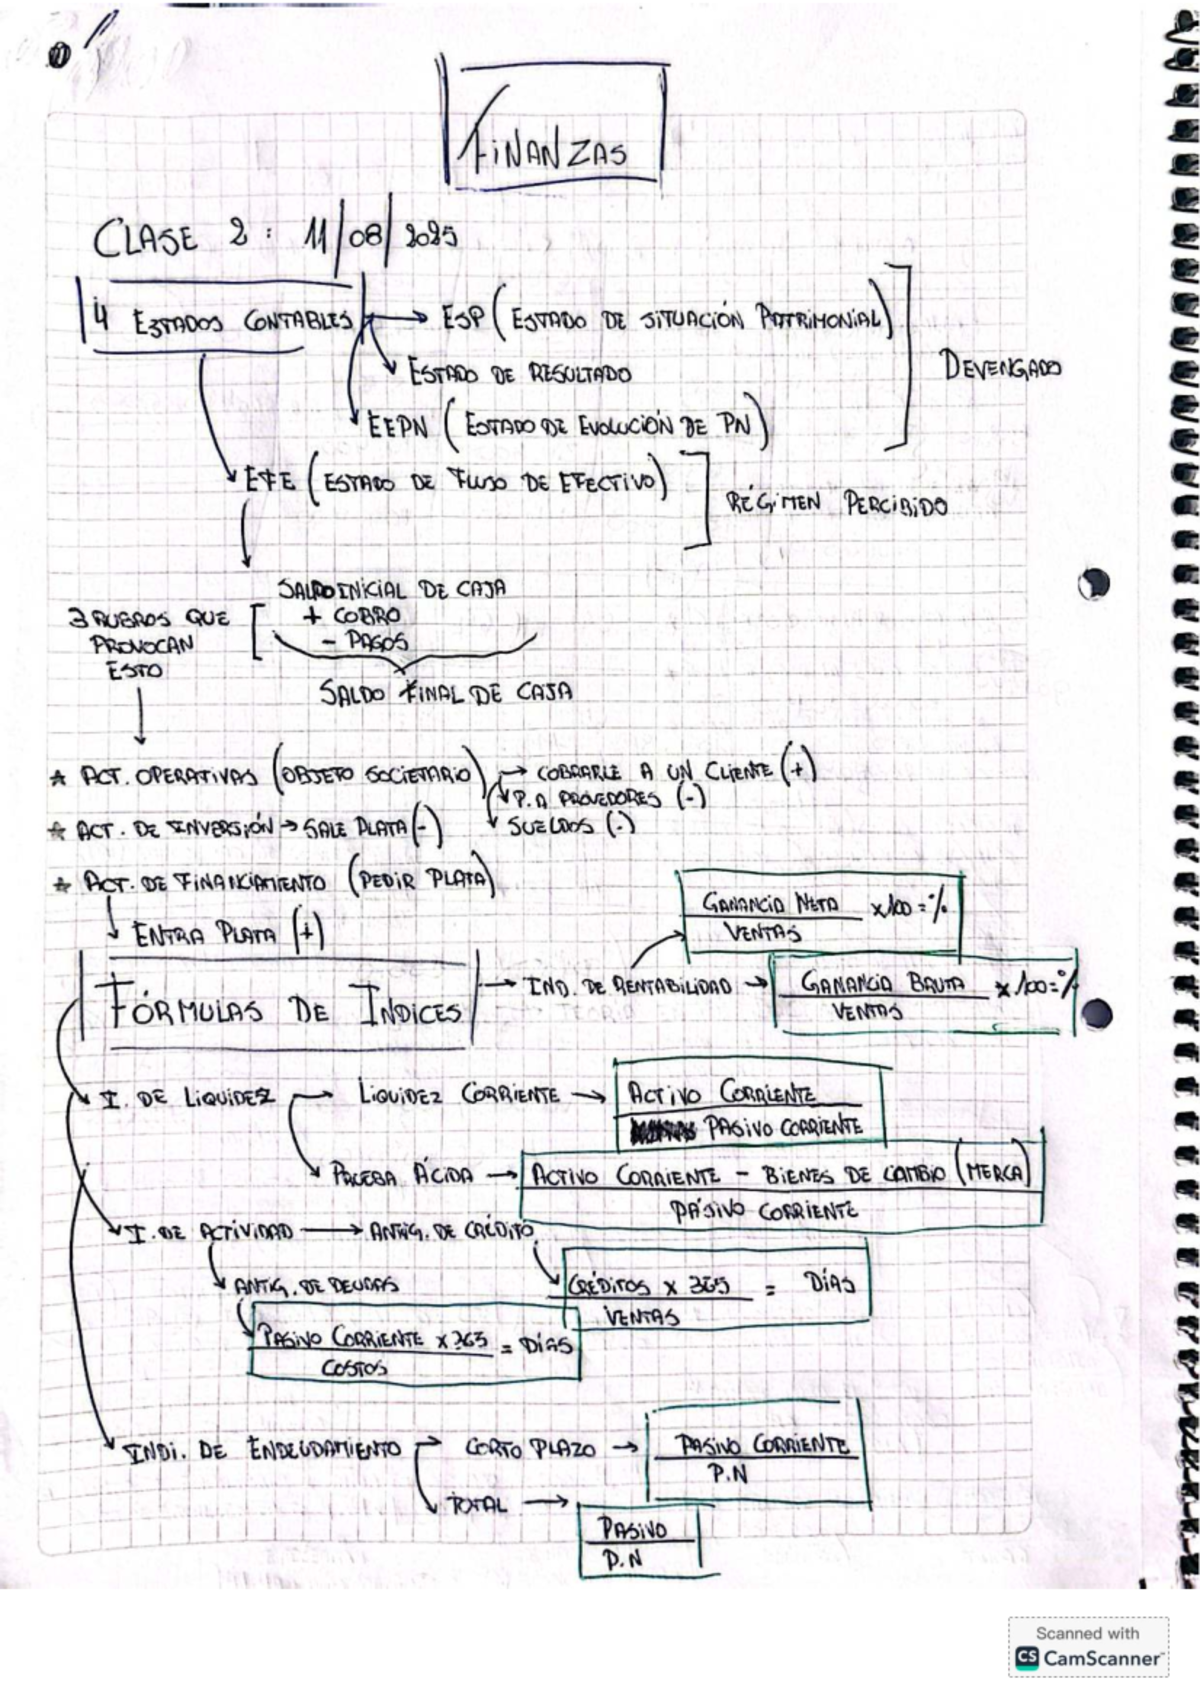 FINANZAS
CLASE 2 : 11/08/2025
4 ESTADOS CONTABLES → ESP (ESTADO DE SITUACIÓN PATRIMONIAL)
ESTADO DE RESULTADO
DEVENGADO
EEPN (ESTADO DE EVOLUCIÓN DE PN)
EFE (ESTADO DE FLUJO DE EFECTIVO)
RÉGIMEN PERCIBIDO
SALDO INICIAL DE CAJA
+ COBRO
- PAGOS
3 RUBROS QUE
PROVOCAN
ESTO
SALDO FINAL DE CAJA
* ACT. OPERATIVAS (OBJETO SOCIETARIO) → COBRARLE A UN CLIENTE (+)
P. A PROVEDORES (-)
SUELDOS (-)
* ACT. DE INVERSIÓN → SALE PLATA (-)
* ACT. DE FINANCIAMIENTO (PEDIR PLATA)
ENTRA PLATA (+)
FÓRMULAS DE ÍNDICES → IND. DE RENTABILIDAD →
GANANCIA NETA x100 = %
VENTAS
GANANCIA BRUTA x 100 = %
VENTAS
I. DE LIQUIDEZ → LIQUIDEZ CORRIENTE →
ACTIVO CORRIENTE
PASIVO CORRIENTE
PRUEBA ÁCIDA →
ACTIVO CORRIENTE - BIENES DE CAMBIO (MERCA)
PASIVO CORRIENTE
I. DE ACTIVIDAD → ANTIG. DE CRÉDITO
CRÉDITOS x 365 = DÍAS
VENTAS
ANTIG. DE DEUDAS
PASIVO CORRIENTE x 365 = DÍAS
COSTOS
INDI. DE ENDEUDAMIENTO → CORTO PLAZO →
PASIVO CORRIENTE
P.N
TOTAL →
PASIVO
P.N
Scanned with
CS CamScanner